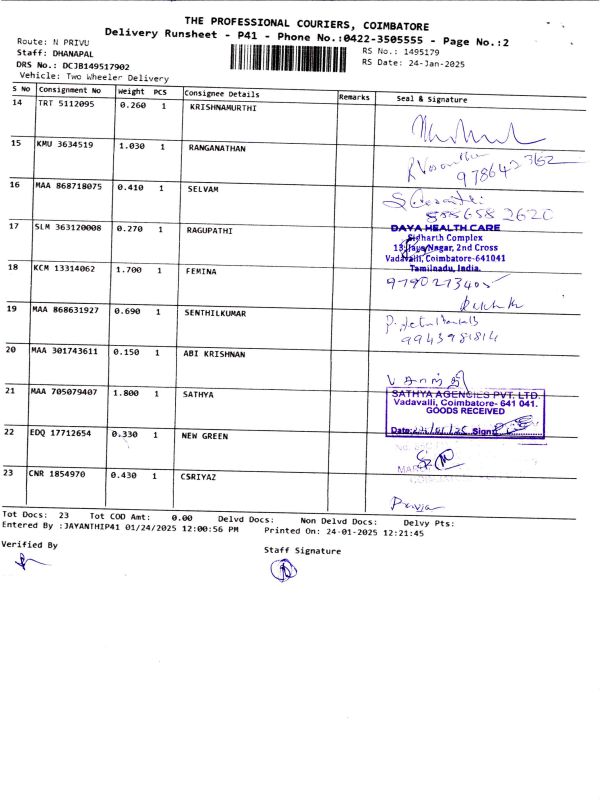 THE PROFESSIONAL COURIERS, COIMBATORE
Delivery Runsheet - P41 - Phone No.:0422-3505555 - Page No.:2
Route: N PRIVU
Staff: DHANAPAL
RS No.: 1495179
DRS No.: DCJB149517902
RS Date: 24-Jan-2025
Vehicle: Two Wheeler Delivery
S No Consignment No Weight PCS Consignee Details Remarks Seal & Signature
14 TRT 5112095 0.260 1 KRISHNAMURTHI
15 KMU 3634519 1.030 1 RANGANATHAN
16 MAA 868718075 0.410 1 SELVAM
17 SLM 363120008 0.270 1 RAGUPATHI
DAYA HEALTH CARE
Sidharth Complex
13, Jaya Nagar, 2nd Cross
Vadavalli, Coimbatore-641041
Tamilnadu, India.
18 KCM 13314062 1.700 1 FEMINA
9790273405
19 MAA 868631927 0.690 1 SENTHILKUMAR
9943981814
20 MAA 301743611 0.150 1 ABI KRISHNAN
21 MAA 705079407 1.800 1 SATHYA
SATHYA AGENCIES PVT. LTD.
Vadavalli, Coimbatore- 641 041.
GOODS RECEIVED
Date: Sign:
22 EDQ 17712654 0.330 1 NEW GREEN
23 CNR 1854970 0.430 1 CSRIYAZ
Tot Docs: 23 Tot COD Amt: 0.00 Delvd Docs: Non Delvd Docs: Delvy Pts:
Entered By :JAYANTHIP41 01/24/2025 12:00:56 PM Printed On: 24-01-2025 12:21:45
Verified By Staff Signature